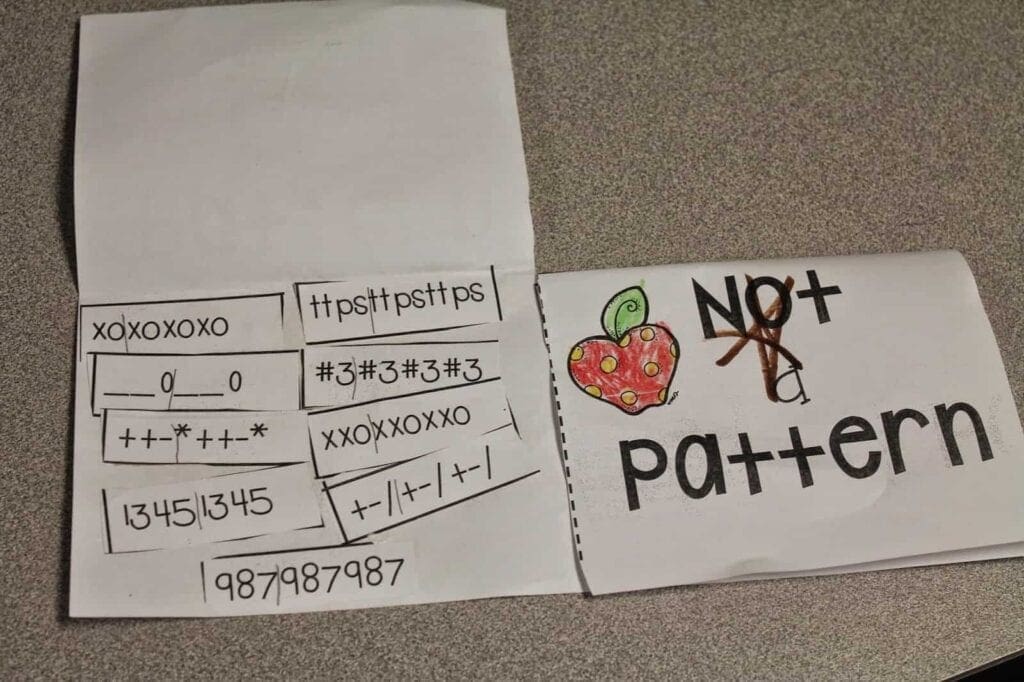 xoxoxoxo
ttpsttpsttps
___0___0
#3#3#3#3
++-*++-*
xxoxxoxxo
13451345
+-/+-/+-/
987987987
Not
a
pattern